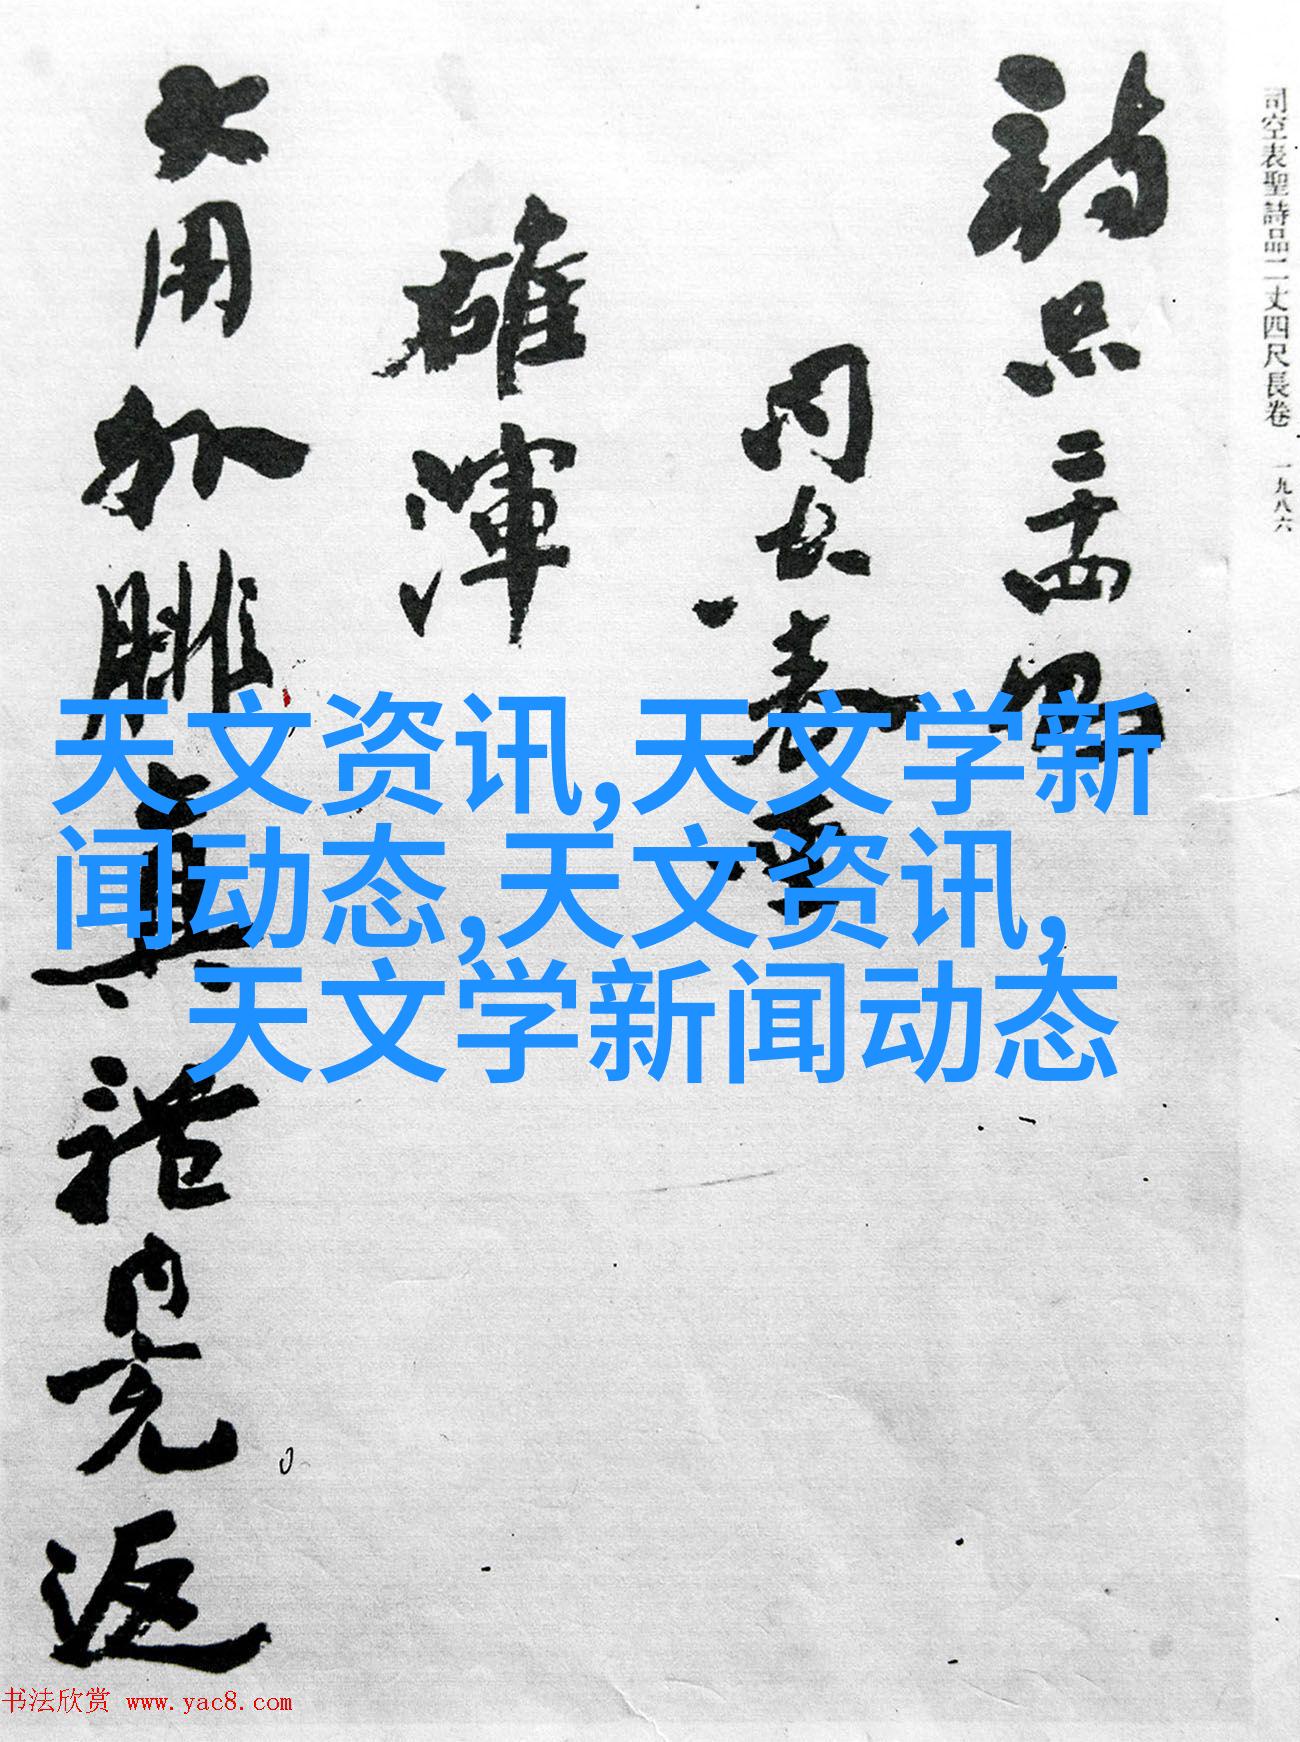 司空表聖詩品二丈四尺長卷 一九八六
詩品二十四則
司空表聖
雄渾
大用外腓真體內充返
天文资讯,天文学新
闻动态,天文资讯,
天文学新闻动态
书法欣赏 www.yac8.com